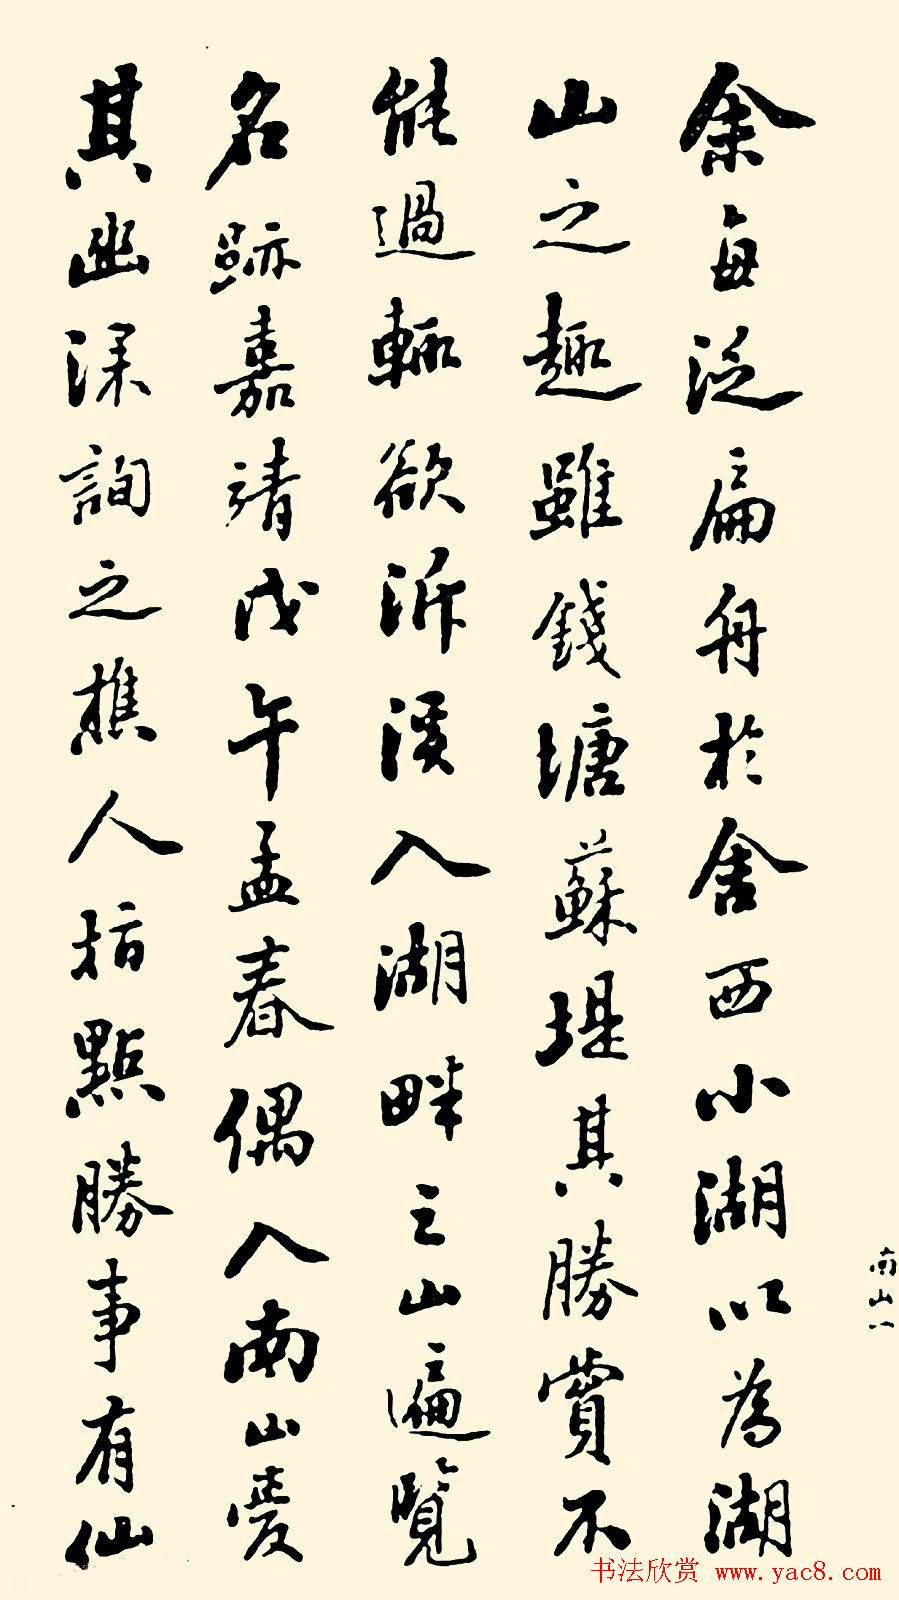 余每泛扁舟於舍西小湖以為湖
山之趣雖錢塘蘇堤其勝賞不
能過輒欲泝溪入湖畔之山遍覽
名跡嘉靖戊午孟春偶入南山愛
其幽深詢之樵人指點勝事有仙
南山八
书法欣赏 www.yac8.com